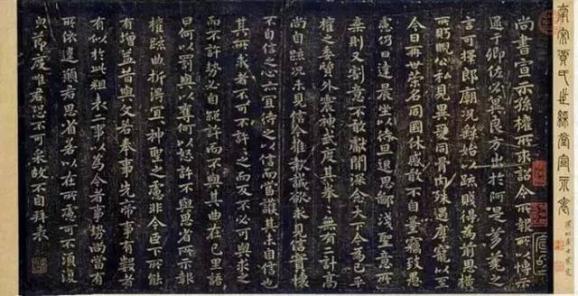 南宋賈氏宣示表
尚書宣示孫權所求詔令所報所以博示
逮于卿佐必冀良方出於阿是芻蕘之
言可擇郎廟況繇始以疏賤得為前恩橫
所盱睨公私見異愛同骨肉殊遇厚寵以至
今日再世榮名同國休慼敢不自量竊致愚
慮仍日達晨坐以待旦退思鄙淺聖意所
棄則又割意不敢獻聞深念天下今為已平
權之委質外震神武度其拳拳無有二計高
尚自疏況未見信今推款誠欲求見信實懷
不自信之心亦宜待之以信而當護其未自信也
其所求者不可不許許之而反不必可與求之
而不許勢必自絕許而不與其曲在己里語
曰何以罰與以奪何以怒許不與思省所示報
權疏曲折得宜宜神聖之慮非今臣下所能
有增益昔與文若奉事先帝事有數者
有似於此粗表二事以為今者事勢尚當有
所依違願君思省若以在所慮可不須復
貌節度唯君恐不可采故不自拜表